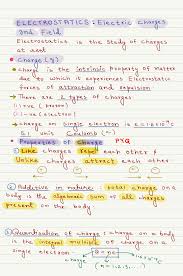 ELECTROSTATICS: Electric Charges
and Field
Electrostatics is the study of charges
at rest
Charge (q)
Charge is the intrinsic Property of Matter
due to which it experiences Electrostatic
forces of attraction and repulsion
There are 2 types of charges
(i) +ve (
(ii) -ve (electron)
charge on single electron is
S.I unit Coulomb (C)
Properties of Charge PYQ
① Like charges repel each other &
Unlike charges attract each other
② Additive in nature: total charge on
a body is the algebraic sum of all charges
present on the body
③ Quantisation of charge: charge on a body
is the integral multiple of charge on a
single electron
charge